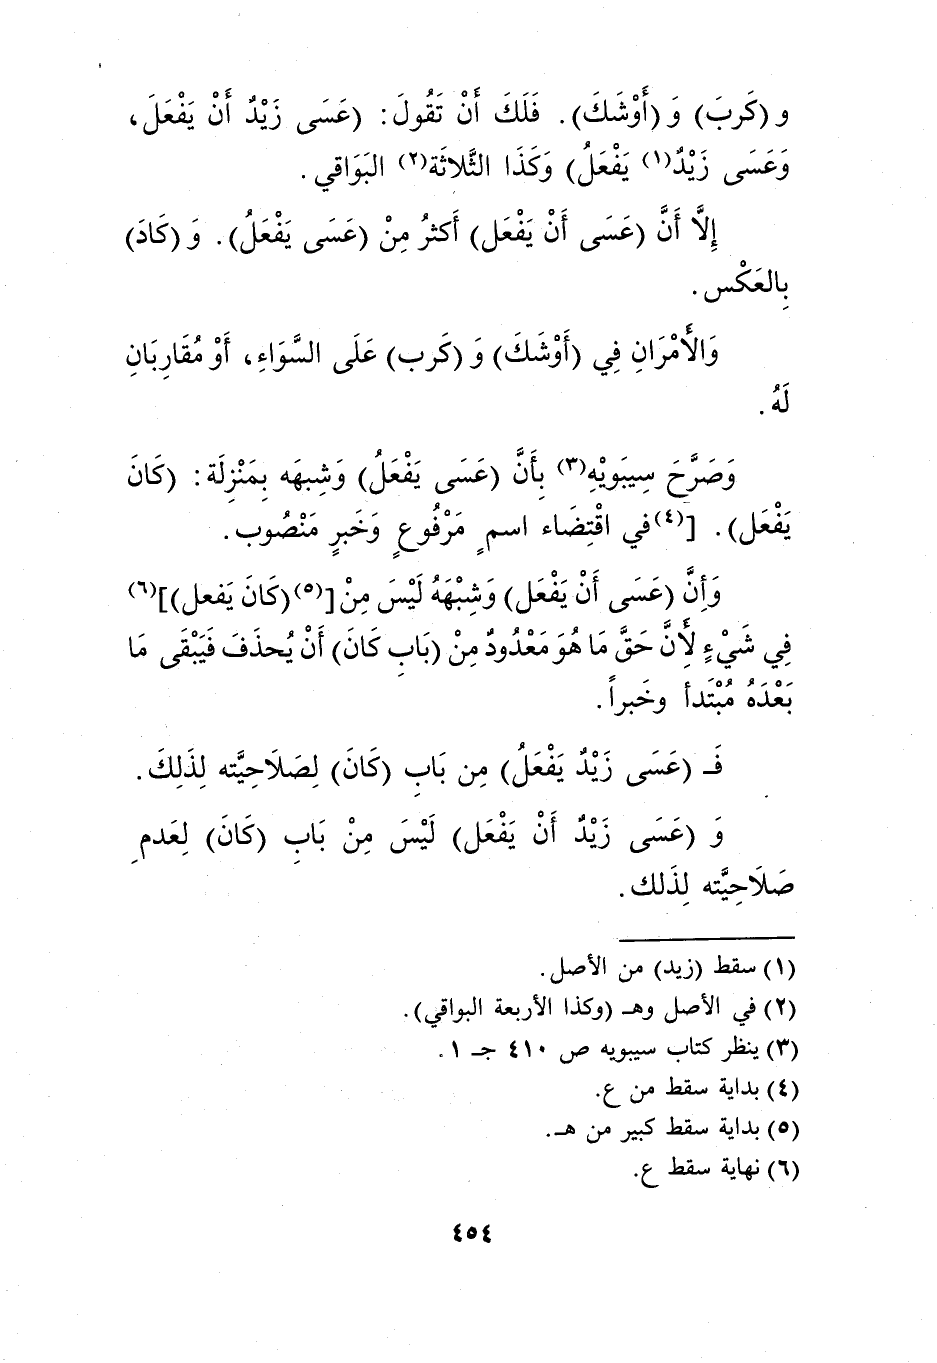 و (كَربَ) وَ (أَوْشَكَ). فَلَكَ أَنْ تَقُولَ: (عَسَى زَيْدٌ أَنْ يَفْعَلَ،
وَعَسَى زَيْدٌ(١) يَفْعَلُ) وَكَذَا الثَّلاثَة(٢) البَوَاقي.
إِلاَّ أَنَّ (عَسَى أَنْ يَفْعَل) أَكثرُ مِنْ (عَسَى يَفْعَلُ). وَ (كَادَ)
بِالعَكْس.
وَالأَمْرَانِ فِي (أَوْشَكَ) وَ (كَرب) عَلَى السَّوَاءِ، أَوْ مُقَارِبَانِ
لَهُ.
وَصَرَّحَ سِيبَويْهِ(٣) بِأَنَّ (عَسَى يَفْعَلُ) وَشِبهَه بِمَنْزِلَة: (كَانَ
يَفْعَل). [(٤)في اقْتِضَاء اسمٍ مَرْفُوعٍ وَخَبرٍ مَنْصُوب.
وَأنَّ (عَسَى أَنْ يَفْعَل) وَشِبْهَهُ لَيْسَ مِنْ [(٥)(كَانَ يَفعل)](٦)
فِي شَيْءٍ لأَنَّ حَقَّ مَا هُوَ مَعْدُودٌ مِنْ (بَابِ كَانَ) أَنْ يُحذَفَ فَيَبْقَى مَا
بَعْدَهُ مُبْتَدأ وخَبراً.
فَـ (عَسَى زَيْدٌ يَفْعَلُ) مِن بَابِ (كَانَ) لِصَلاَحِيَّته لِذَلِكَ.
وَ (عَسَى زَيْدٌ أَنْ يَفْعَل) لَيْسَ مِنْ بَابِ (كَانَ) لِعَدمِ
صَلاَحِيَّته لِذَلك.
(١) سقط (زيد) من الأصل.
(٢) في الأصل وهـ (وكذا الأربعة البواقي).
(٣) ينظر كتاب سيبويه ص ٤١٠ جـ ١.
(٤) بداية سقط من ع.
(٥) بداية سقط كبير من هـ.
(٦) نهاية سقط ع.
٤٥٤